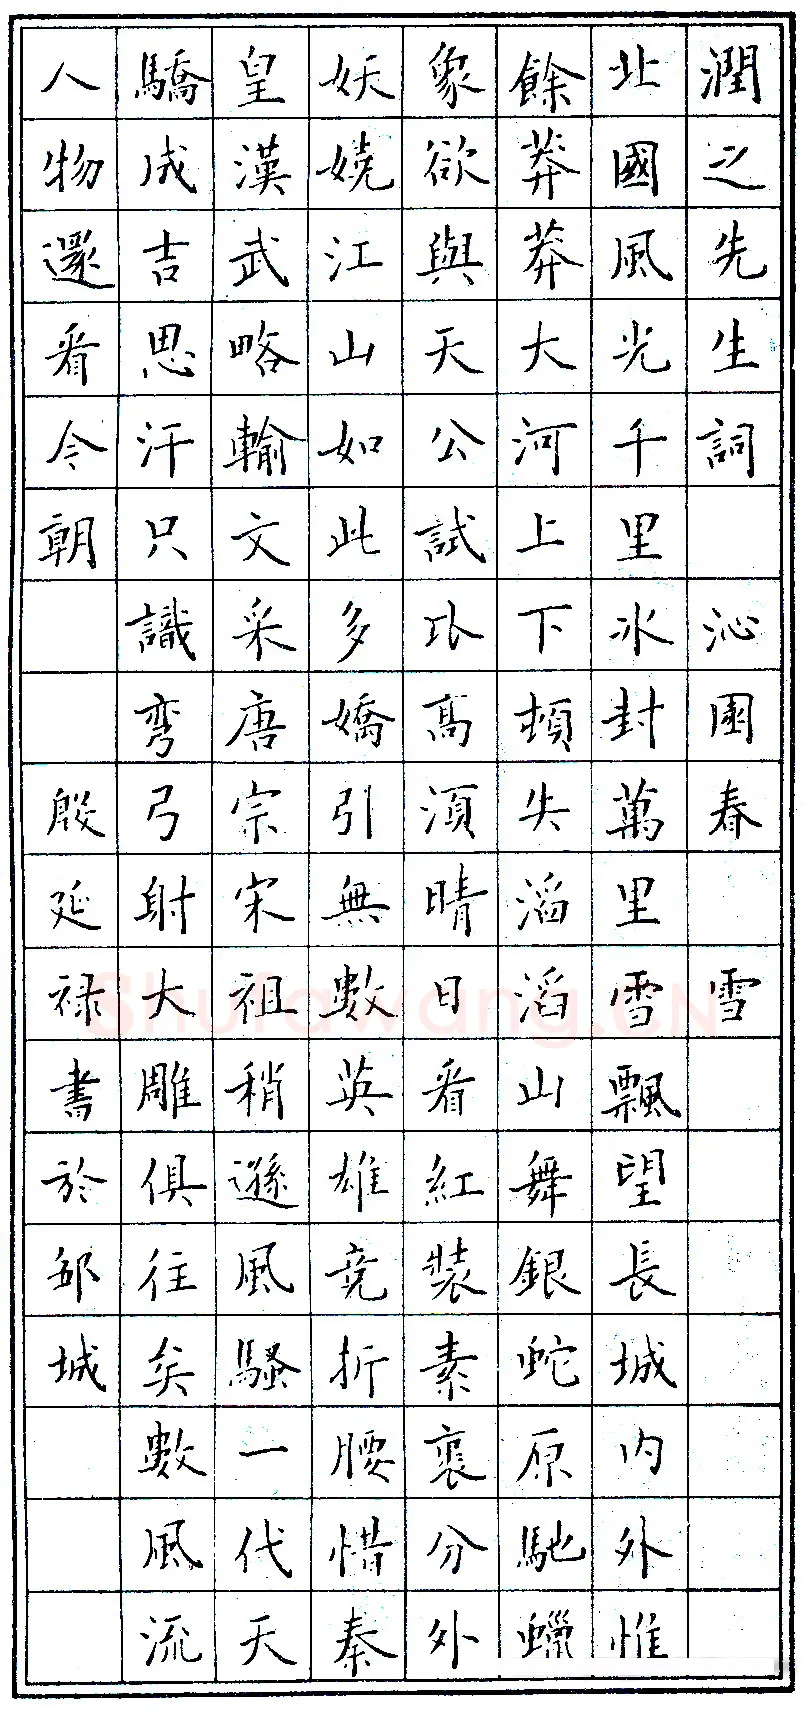 潤之先生詞 沁園春 雪
北國風光千里冰封萬里雪飄望長城内外惟
餘莽莽大河上下頓失滔滔山舞銀蛇原馳蠟
象欲與天公試比高須晴日看紅裝素裹分外
妖嬈江山如此多嬌引無數英雄竞折腰惜秦
皇漢武略輸文采唐宗宋祖稍遜風騷一代天
驕成吉思汗只識弯弓射大雕俱往矣數風流
人物還看今朝 殷延禄書於邹城
Shufawang.CN